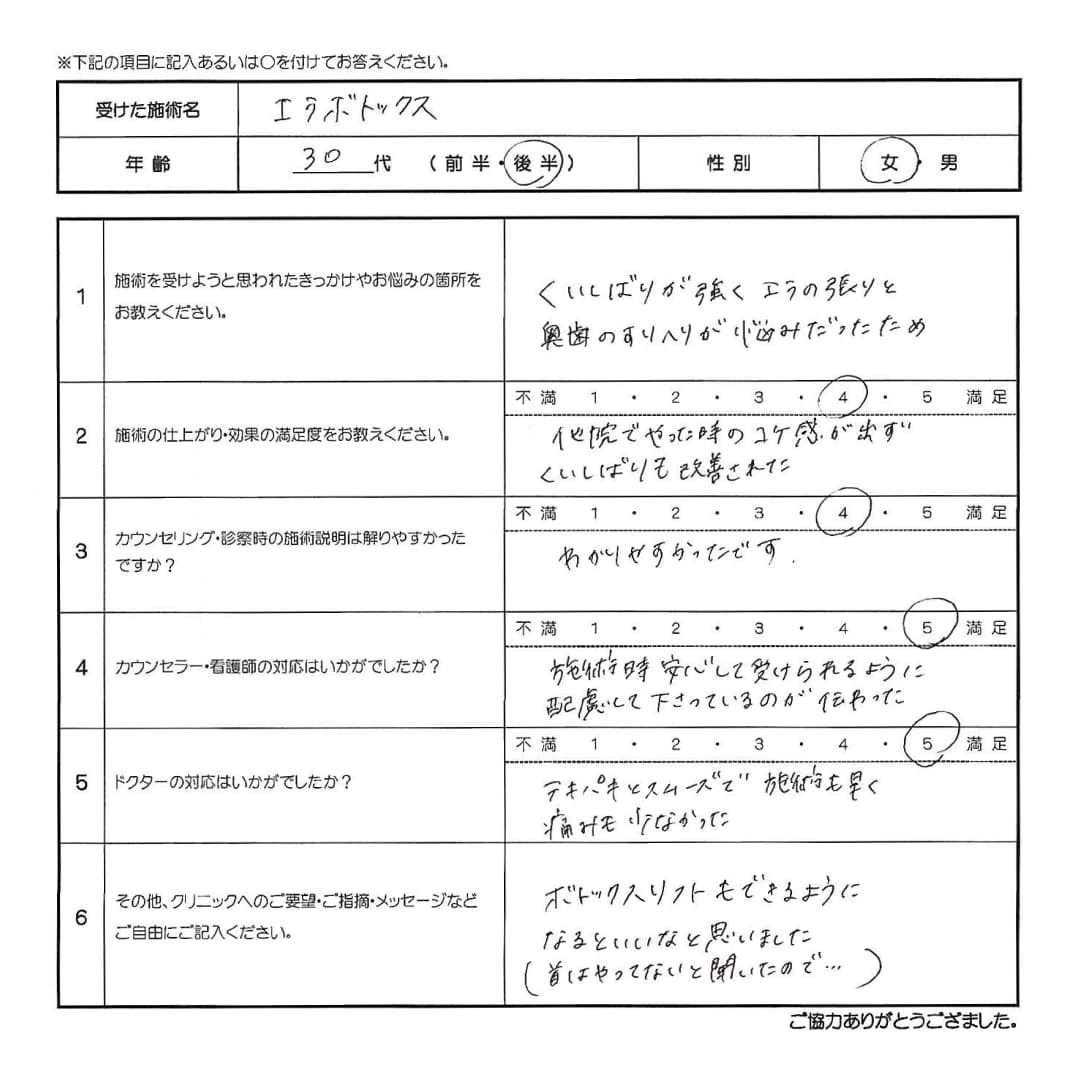 ※下記の項目に記入あるいは〇を付けてお答えください。
受けた施術名 エラボトックス
年齢 30代 (前半・後半) 性別 女・男
1 施術を受けようと思われたきっかけやお悩みの箇所を
お教えください。
くいしばりが強く エラの張りと
奥歯のすりへりが悩みだったため
不満 1 ・ 2 ・ 3 ・ 4 ・ 5 満足
2 施術の仕上がり・効果の満足度をお教えください。
他院でやった時のコケ感が出ず
くいしばりも改善された
不満 1 ・ 2 ・ 3 ・ 4 ・ 5 満足
3 カウンセリング・診察時の施術説明は解りやすかった
ですか？
わかりやすかったです.
不満 1 ・ 2 ・ 3 ・ 4 ・ 5 満足
4 カウンセラー・看護師の対応はいかがでしたか？
施術時 安心して受けられるように
配慮して下さっているのが伝わった
不満 1 ・ 2 ・ 3 ・ 4 ・ 5 満足
5 ドクターの対応はいかがでしたか？
テキパキとスムーズで 施術も早く
痛みも少なかった
6 その他、クリニックへのご要望・ご指摘・メッセージなど
ご自由にご記入ください。
ボトックスリフトもできるように
なるといいなと思いました
(首はやってないと聞いたので…)
ご協力ありがとうござました。